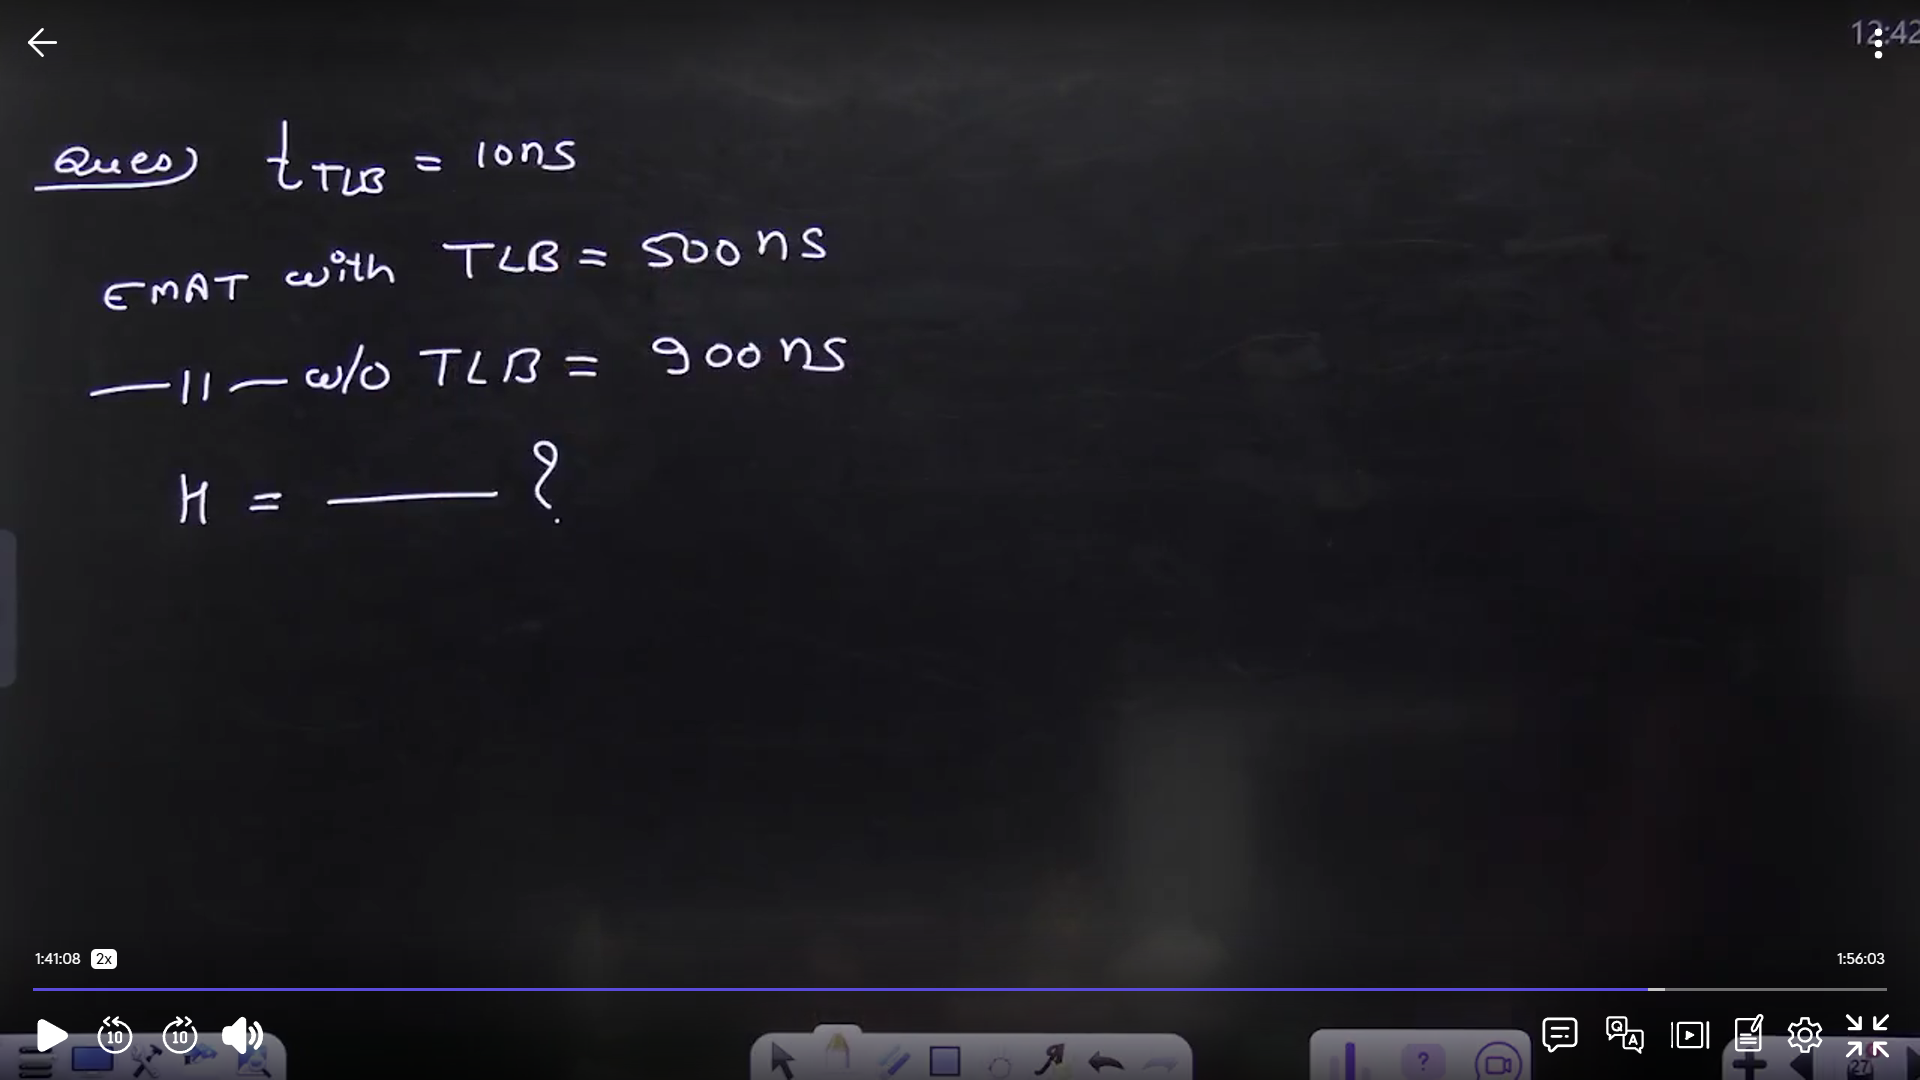 12:42
Ques) tTLB = 10ns
EMAT with TLB = 500ns
—11— w/o TLB = 900ns
H = ______ ?
1:41:08 2x 1:56:03
10 10
Q A
?
27